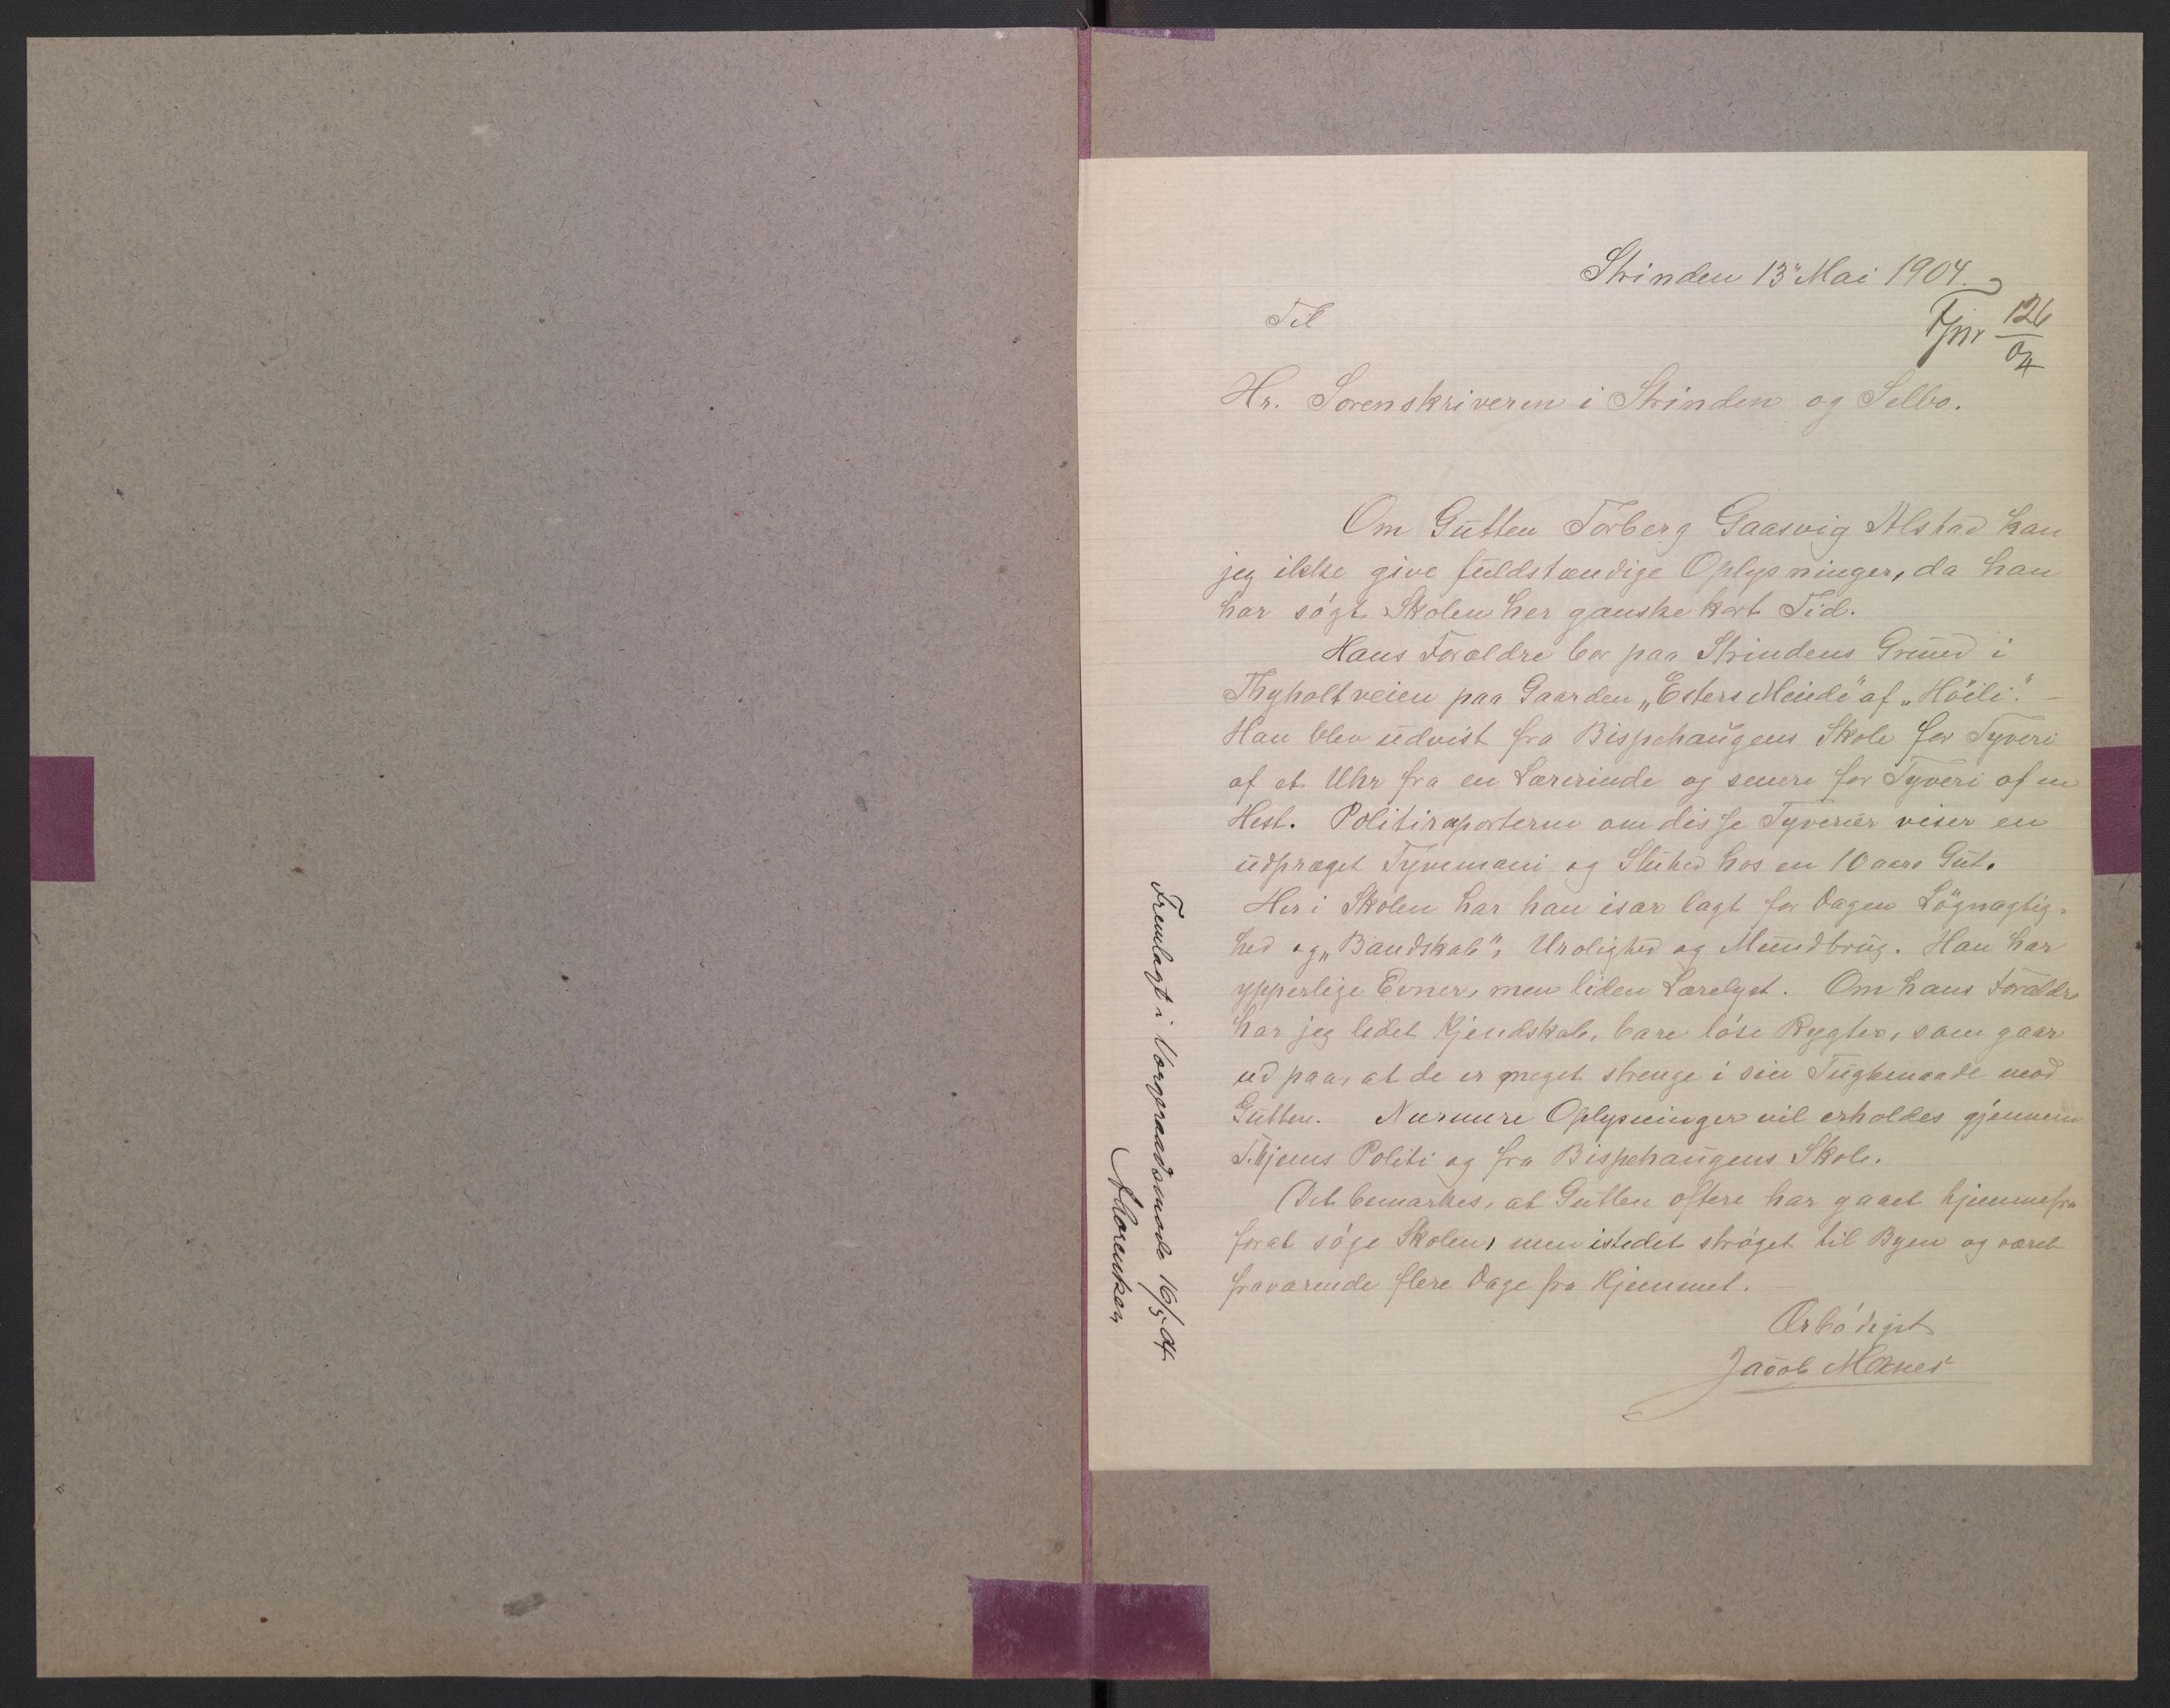 Strinden 13de Mai 1904.
Fjnr 126/04
Til
Hr. Sorenskriveren i Strinden og Selbo.
Om Gutten Torberg Gaasvig Alstad kan
jeg ikke give fuldstændige Oplysninger, da han
har søgt Skolen her ganske kort Tid.
Hans Forældre bor paa Strindens Grund i
Thyholtveien paa Gaarden „Esters Minde" af „Höili". —
Han blev udvist fra Bispehaugens Skole for Tyveri
af et Uhr fra en Lærerinde og senere for Tyveri af en
Hest. Politiraporterne om disse Tyverier viser en
udpræget Tyvemani og Sluhed hos en 10 aars Gut.
Her i Skolen har han især lagt for Dagen Løgnagtig-
hed og „Bandskab", Urolighed og Mundbrug. Han har
ypperlige Evner, men liden Lærelyst. Om hans Forældre
har jeg lidet Kjendskab, bare løse Rygter, som gaar
ud paa, at de er meget strenge i sin Tugtemaade mod
Gutten. Nærmere Oplysninger vil erholdes gjennem
T.hjems Politi og fra Bispehaugens Skole.
Det bemærkes, at Gutten oftere har gaaet hjemmefra
forat søge Skolen, men istedet strøget til Byen og været
fraværende flere Dage fra Hjemmet.
Ærbødigst
Jacob
Fremlagt i Vergeraadsmøde 16/5 04